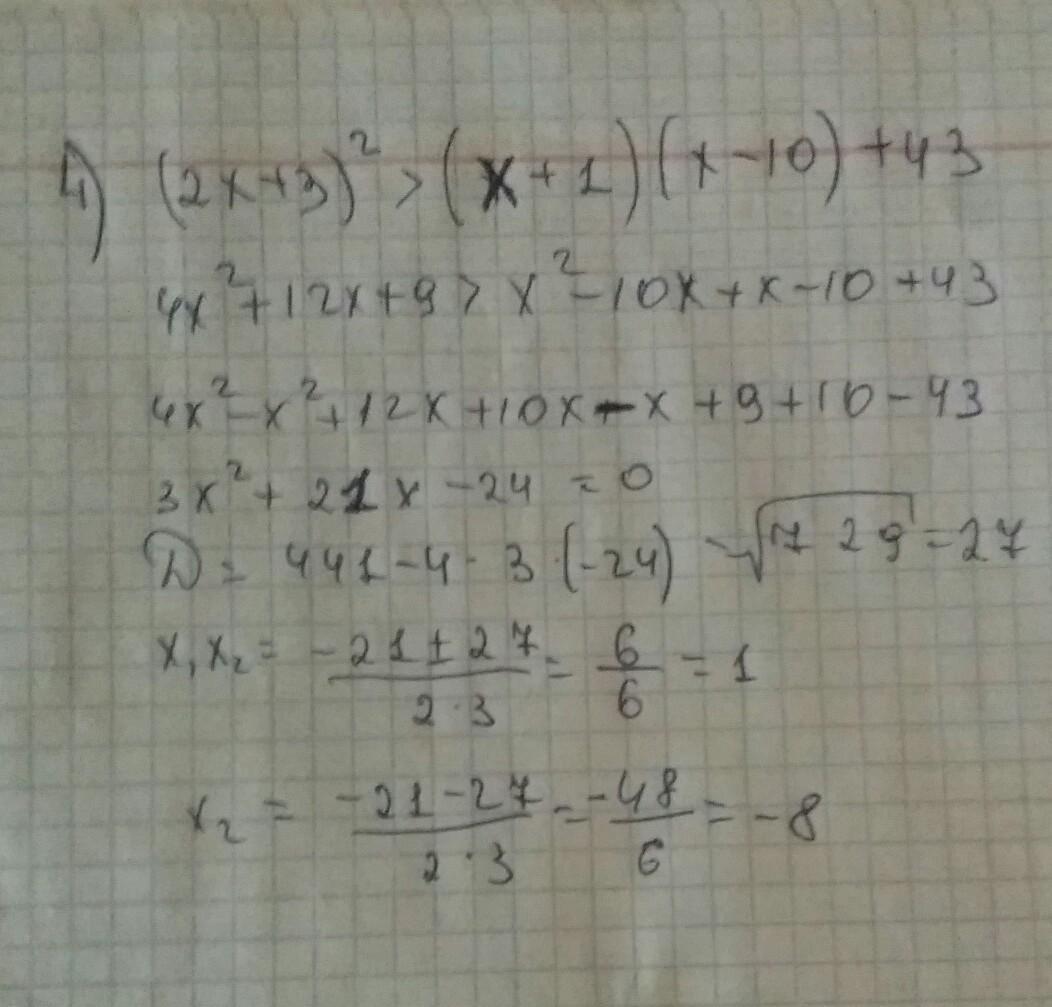 4) (2x+3)² > (x+1)(x-10)+43
4x²+12x+9 > x²-10x+x-10+43
4x²-x²+12x+10x-x+9+10-43
3x²+21x-24=0
D=441-4·3·(-24) -√729=27
x,x₂=-21±27/2·3=6/6=1
x₂=-21-27/2·3=-48/6=-8